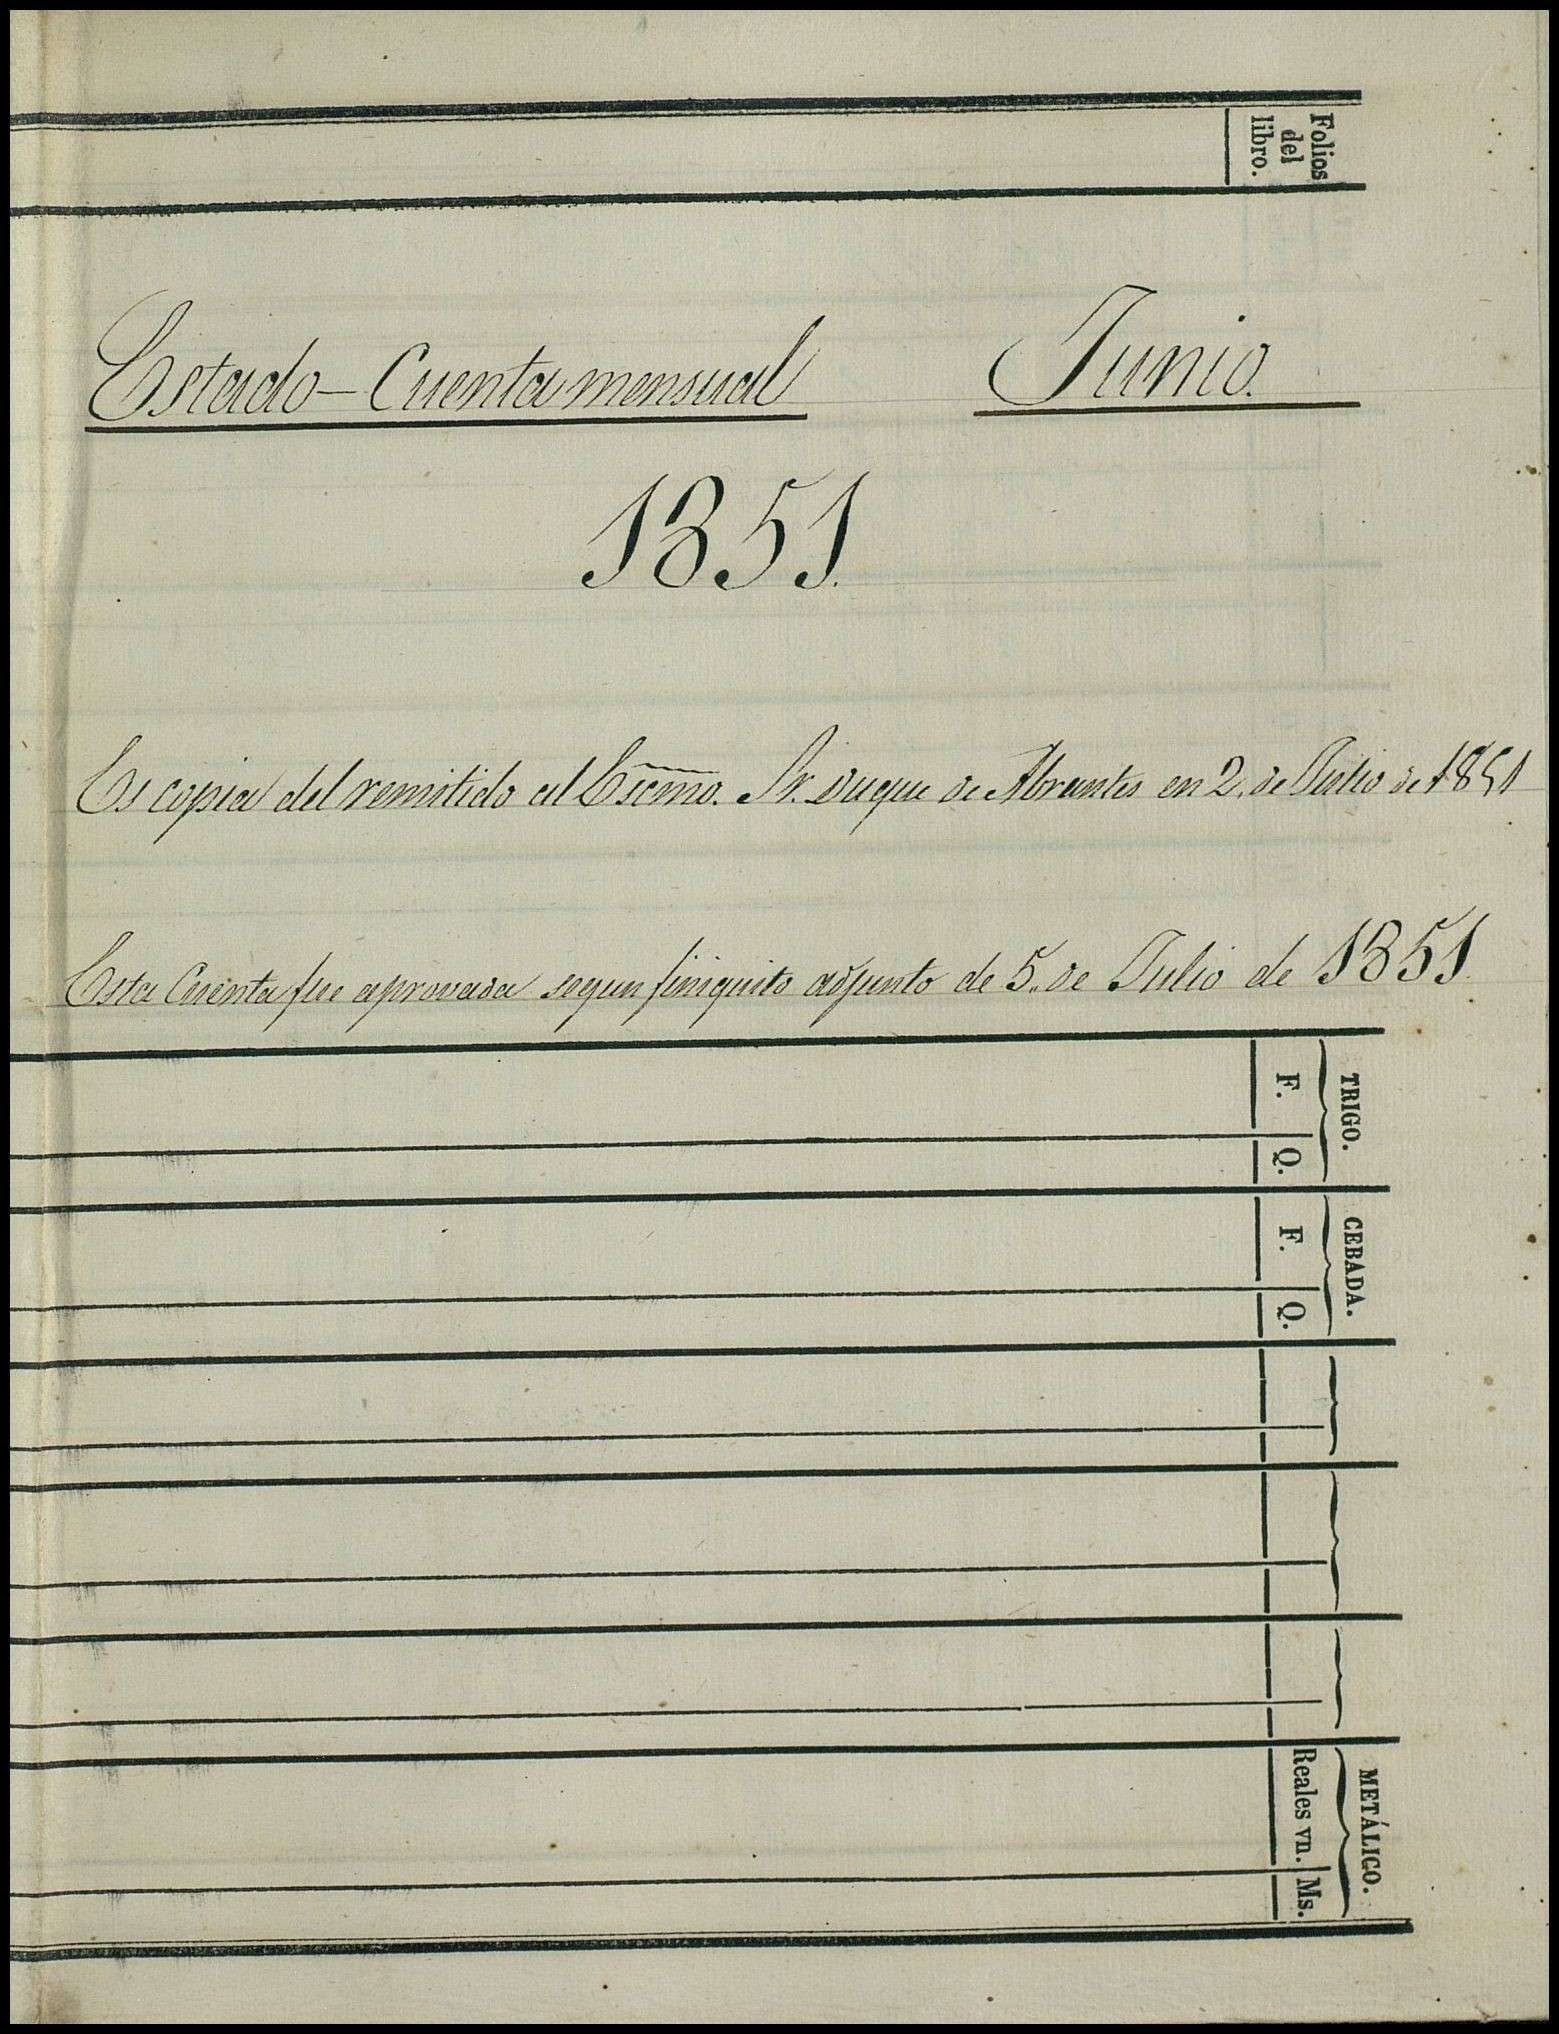 Folios
del
libro.
Estado-Cuenta mensual Junio.
1851.
Es copia del remitido al Escmo. Sr. Duque de Abrantes en 2. de Julio de 1851
Esta Cuenta fue aprovada segun finiquito adjunto de 5. de Julio de 1851.
TRIGO.
F. Q.
CEBADA.
F. Q.
METÁLICO.
Reales vn. Ms.